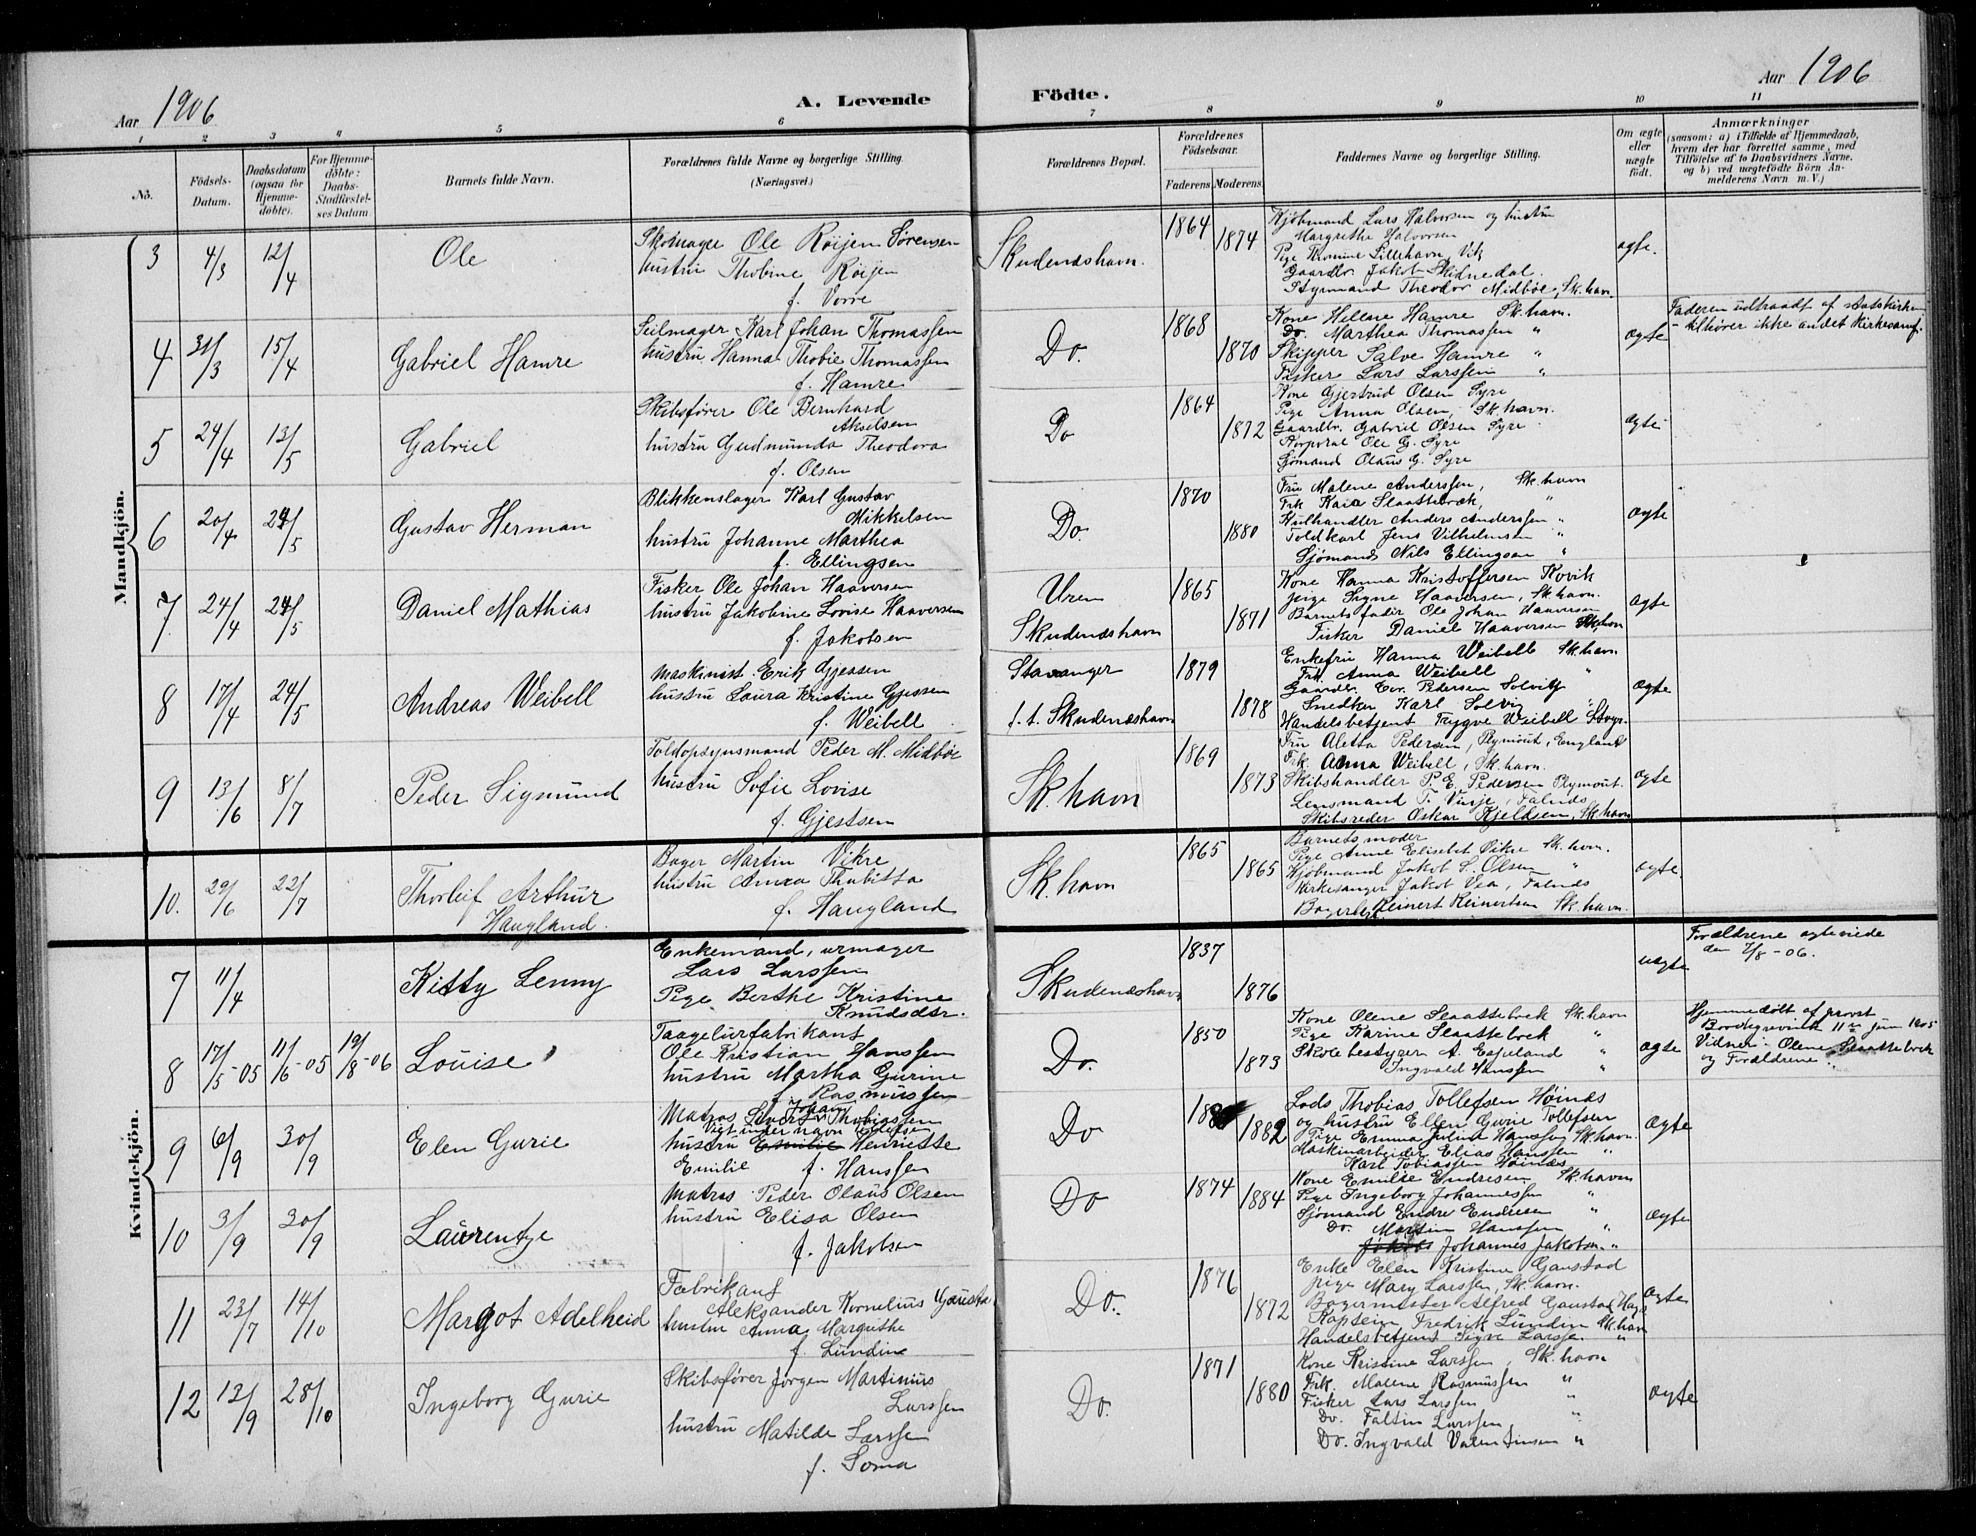 Aar 1906
A. Levende
Födte.
Aar 1906
1 2 3 4 5 6 7 8 9 10 11
No.
Födsels-Datum.
Daabsdatum (ogsaa for Hjemme-döbte).
For Hjemme-döbte: Daabs-Stadfæstel-ses Datum
Barnets fulde Navn.
Forældrenes fulde Navne og borgerlige Stilling.
(Næringsvei.)
Forældrenes Bopæl.
Forældrenes Födselsaar.
Faderens. Moderens.
Faddernes Navne og borgerlige Stilling.
Om ægte eller uægte födt.
Anmærkninger
(saasom: a) i Tilfælde af Hjemmedaab,
hvem der har forrettet samme, med
Tilföielse af to Daabsvidners Navne,
og b) ved uægtefödte Börn An-
melderens Navn m. V.)
Mandkjön.
3 4/3 12/4 Ole
Skomager Ole Röijen Sörensen
hustru Thobine Röijen
f. Vorre
Skudenæshavn.
1864 1874
Kjöbmand Lars Halvorsen og hustru
Margrethe Halvorsen
Pige Tomine Lillehavn, Vik
Gaardbr. Jakob Skidnedal.
Styrmand Theodor Midböe, Sk.havn.
ægte.
4 31/3 15/4 Gabriel Hamre
Seilmager Karl Johan Thomassen
hustru Hanna Thobie Thomassen
f. Hamre
Do.
1868 1870
Kone Helene Hamre Sk.havn.
Do. Marthea Thomassen "
Skipper Salve Hamre "
Fisker Lars Larssen "
ægte
Faderen udtraadt af statskirken
- tilhører ikke andet kirkesamf.
5 24/4 13/5 Gabriel
Skibsfører Ole Bernhard
Akselsen
hustru Gudmunda Theodora
f. Olsen
Do
1864 1872
Kone Gjertrud Olsen Syre
Pige Anna Olsen, Sk.havn.
Gaardbr. Gabriel Olsen Syre
Korporal Ole G. Syre
Sjömand Olaus G. Syre
ægte
6 20/4 24/5 Gustav Herman
Blikkenslager Karl Gustav
Mikkelsen
hustru Johanne Marthea
f. Ellingsen
Do.
1870 1880
Fru Malene Anderssen, Sk.havn
Frk Kaia Slaattebræk, "
Kulhandler Anders Anderssen "
Toldkarl Jens Vilhelmsen "
Sjömand Nils Ellingsen "
ægte
7 24/4 24/5 Daniel Mathias
Fisker Ole Johan Haaversen
hustru Jakobine Lovise Haaversen
f. Jakobsen
Uren
Skudenæshavn
1865 1871
Kone Hanna Kristoffersen Kovik
pige Signe Haaversen, Sk.havn.
Barnets fader Ole Johan Haaversen
Fisker Daniel Haaversen Sk.havn
ægte
8 17/4 24/5 Andreas Weibell
Maskinist Erik Gjessen
hustru Laura Kristine Gjessen
f. Weibell
Stavanger
f. t. Skudenæshavn
1879 1878
Enkefru Hanna Weibell Sk.havn
Frk. Anna Weibell "
Gaardbr. Edv. Pedersen Solvig
Snedker Karl Solvig "
Handelsbetjent Trygve Weibell Stvgr.
ægte
9 13/6 8/7 Peder Sigmund
Toldopsynsmand Peder M. Midböe
hustru Sofie Lovise
f. Gjestsen
Sk.havn
1869 1873
Fru Aletta Pedersen, Plymout, England
Frk. Anna Weibell, Sk.havn.
Skibshandler P. E. Pedersen Plymout.
Lensmand T. Vinje, Falnæs
Skibsreder Oskar Kjeldsen, Sk.havn
ægte
10. 29/6 22/7 Thorleif Arthur
Haugland.
Bager Martin Vikre
hustru Anna Thabitta
f. Haugland
Sk.havn
1865 1865
Barnets moder
Pige Anne Elisabet Vikre Sk.havn.
Kjöbmand Jakob S. Olsen "
Kirkesanger Jakob Vea, Falnæs
Reinert Reinertsen Sk.havn.
ægte.
Kvindekjön.
7 11/4 Kitty Lenny
Enkemand, urmager
Lars Larssen
Pige Berthe Kristine
Knudsdtr.
Skudenæshavn
1837 1876
uægte
Forældrene ægteviede
den 7/8-06.
8 17/5-05 11/6-05 19/8-06 Louise
Taagelurfabrikant
Ole Kristian Hanssen
hustru Martha Gurine
f. Rasmussen
Do.
1850 1873
Kone Olene Slaattebræk Sk.havn
Pige Karine Slaattebræk "
Skolebestyrer A. Espeland "
Ingvald Hanssen "
ægte
Hjemmedöbt af provst
Bordewick 11te juni 1905
Vidner: Olene Slaattebræk
og Forældrene
9 6/9 30/9 Elen Gurie
Matros Sivert Johan Thobiassen
Viet under navn Tollefsen
hustru Emilie Henriette
Emilie f. Hanssen
Do
1882
Lods Thobias Tollefsen Höinæs
og hustru Ellen Gurie Tollefsen
Pige Emma Julie Hanssen Sk.havn.
Maskinarbeider Elias Hanssen "
Karl Tobiassen Höinæs
ægte
10 3/9 30/9 Laurentze
Matros Peder Olaus Olsen
hustru Elisa Olsen
f. Jakobsen
Do
1874 1884
Kone Emilie Endresen Sk.havn
Pige Ingeborg Johannessen "
Sjömand Endre Endresen "
Do. Martin Hanssen "
Jakob Johannes Jakobsen "
ægte
11 23/7 14/10 Margot Adelheid
Fabrikant
Aleksander Kornelius Gaustad
hustru Anna Margrethe
f. Lundine
Do.
1876 1872
Enke Elen Kristine Gaustad
pige Mary Larssen, Sk.havn.
Bagermester Alfred Gaustad, Hgs.
Kaptein Fredrik Lundin Sk.havn
Handelsbetjent Sigve Larssen "
ægte
12 12/9 28/10 Ingeborg Gurie
Skibsfører Jörgen Martinius
Larssen
hustru Matilde Larssen
f. Soma
Do.
1871 1880
Kone Kristine Larssen, Sk.havn
Frk. Malene Rasmussen "
Fisker Lars Larssen "
Do. Faltin Larssen "
Do. Ingvald Valentinsen "
ægte